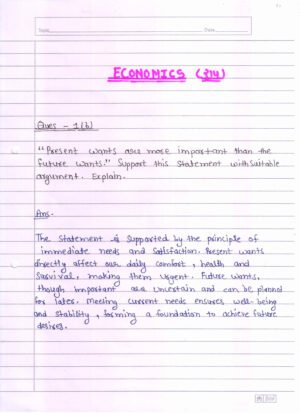 Topic
Date
ECONOMICS (214)
Ques - 1(b)
"Present wants are more important than the
future wants." Support this statement with suitable
argument. Explain.
Ans.
The statement is supported by the principle of
immediate needs and satisfaction. Present wants
directly affect our daily comfort, health and
survival, making them urgent. Future wants,
though important are uncertain and can be planned
for later. Meeting current needs ensures well-being
and stability, forming a foundation to achieve future
desires.